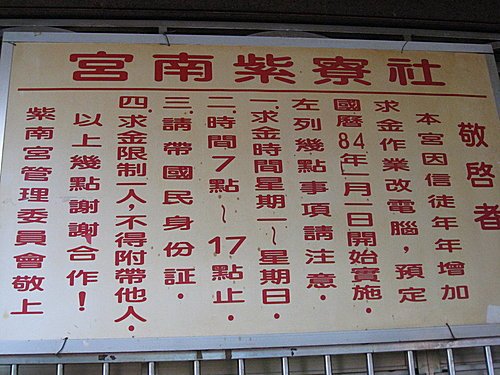 社寮紫南宮
敬啓者
本宮因信徒年年增加
求金作業改電腦，預定
國曆84年一月一日開始實施．
左列幾點事項請注意．
一．求金時間星期一～星期日．
二．時間7點～17點止．
三．請帶國民身份証．
四．求金限制一人，不得附帶他人．
以上幾點謝謝合作！
紫南宮管理委員會敬上